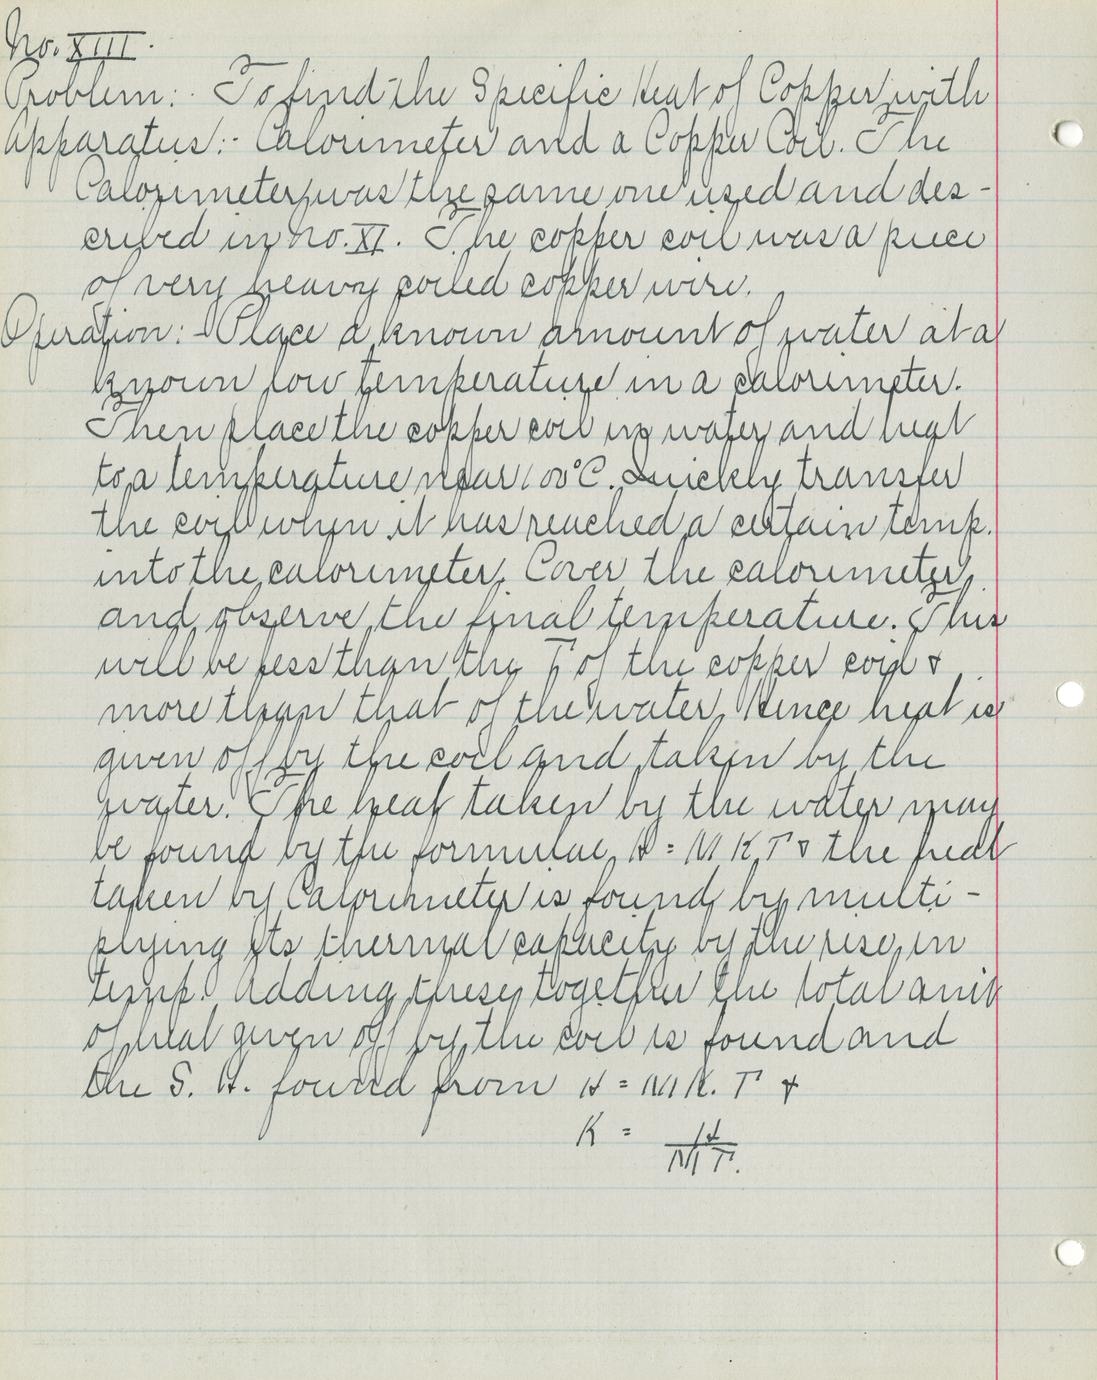 No. XIII.
Problem:- To find the Specific Heat of Copper with
Apparatus:- Calorimeter and a Copper Coil. The
Calorimeter was the same one used and des-
cribed in No. XI. The copper coil was a piece
of very heavy coiled copper wire.
Operation:- Place a known amount of water at a
known low temperature in a calorimeter.
Then place the copper coil in water and heat
to a temperature near 100°C. Quickly transfer
the coil when it has reached a certain temp.
into the calorimeter. Cover the calorimeter
and observe the final temperature. This
will be less than the T of the copper coil &
more than that of the water, Hence heat is
given off by the coil and taken by the
water. The heat taken by the water may
be found by the formulae, H = M K T & the heat
taken by Calorimeter is found by multi-
plying its thermal capacity by the rise in
temp. Adding these together the total amt
of heat given off by the coil is found and
the S. H. found from H = M K. T &
K = H
M T.